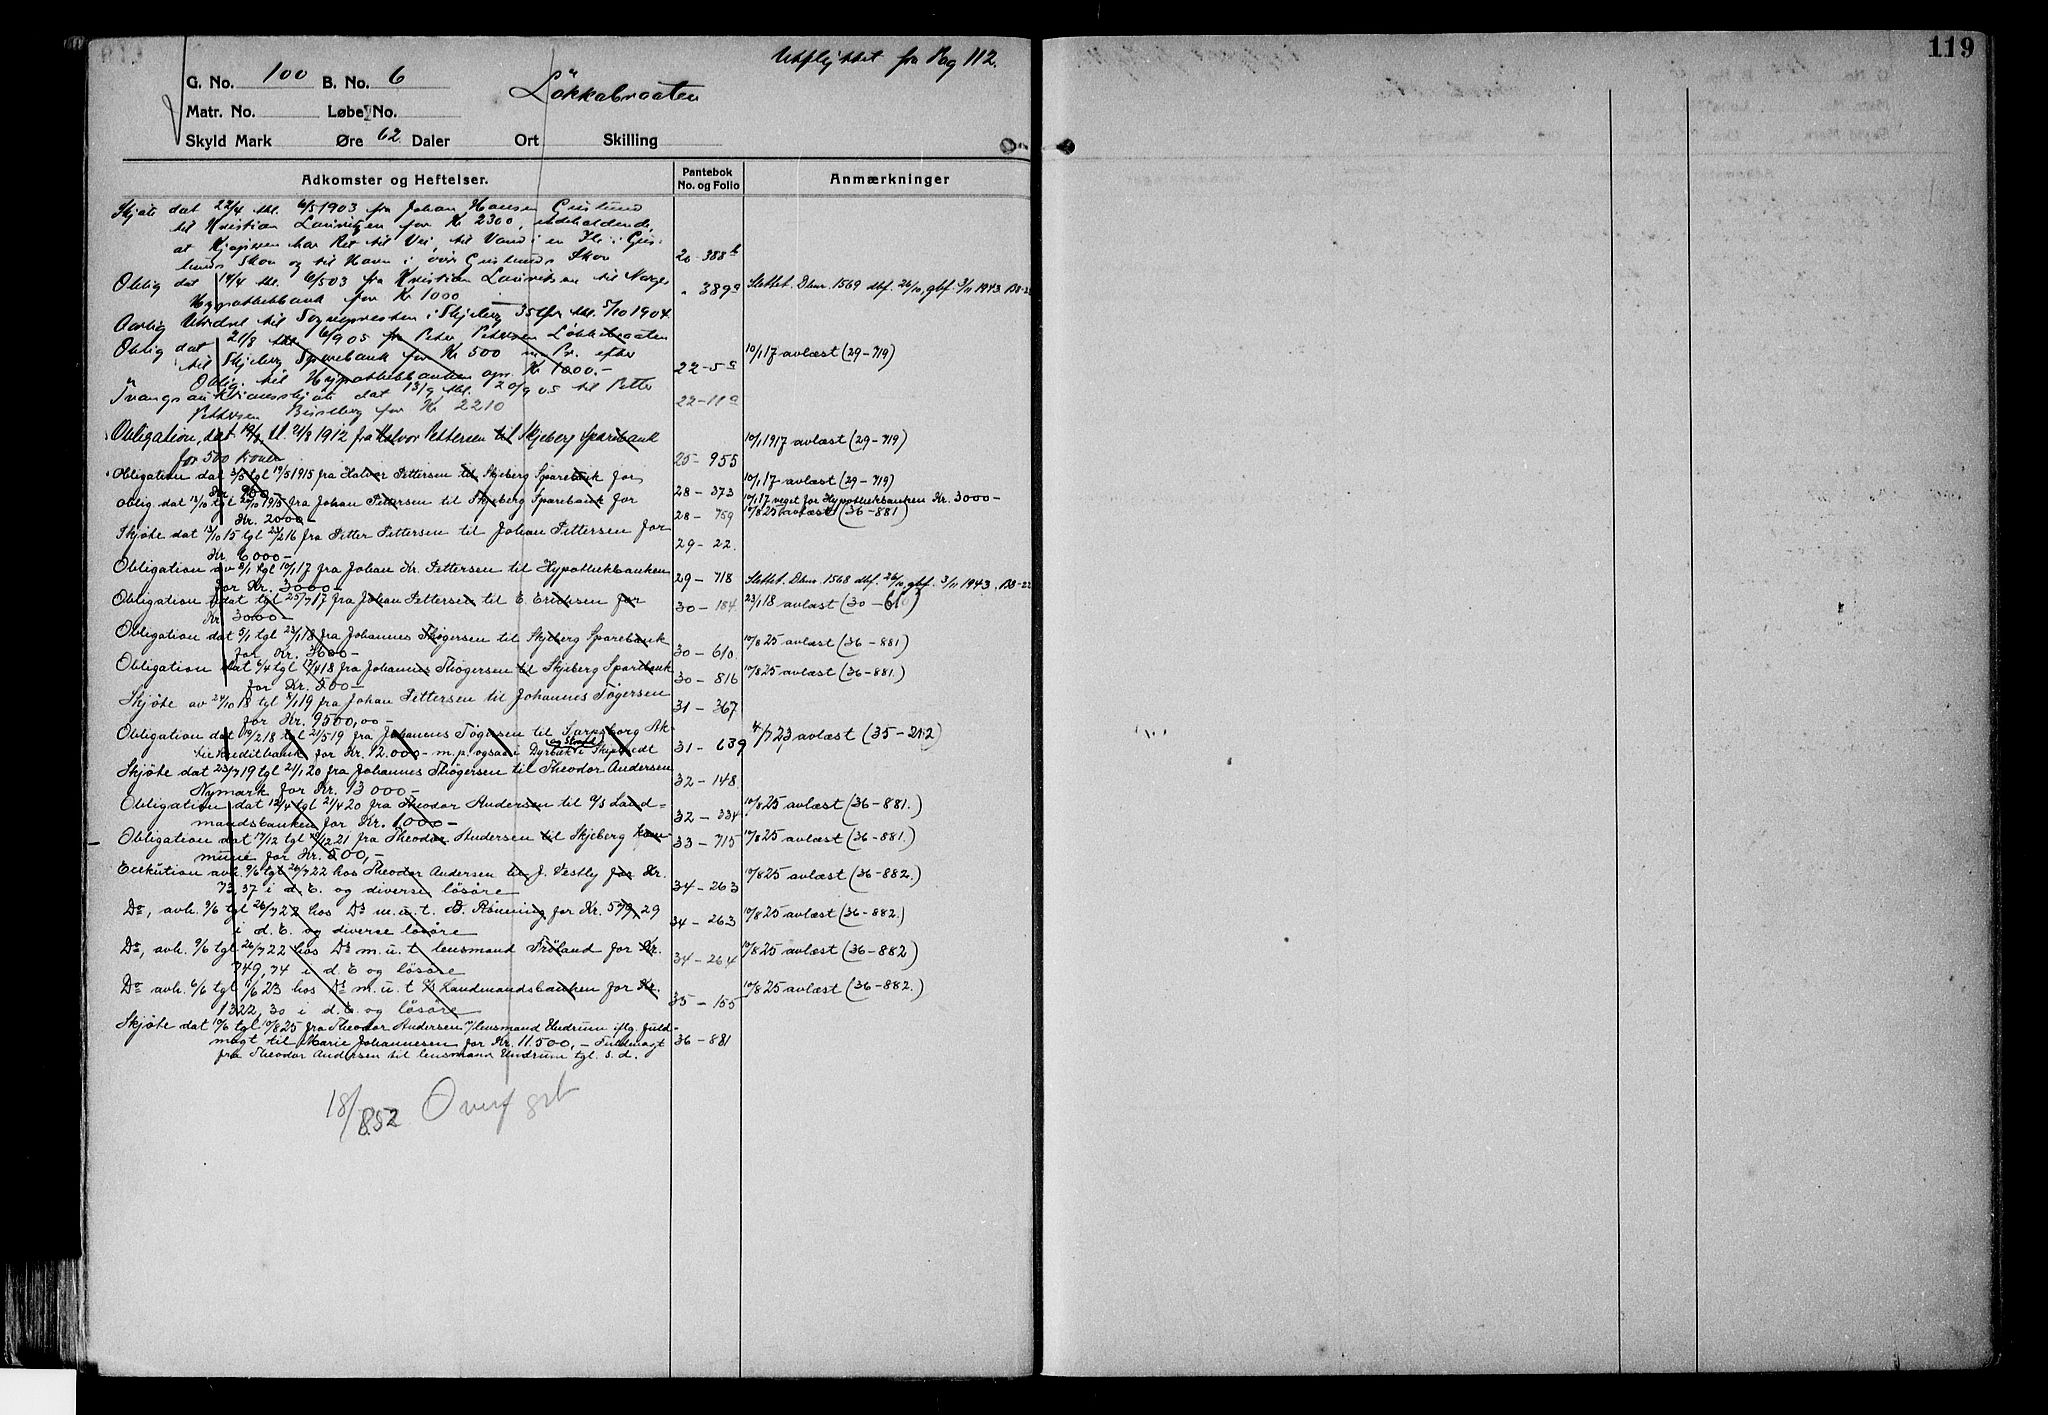 Utflyttet fra Pag 112.
119
G. No. 100 B. No. 6
Løkkebraaten
Matr. No. Løbe No.
Skyld Mark Øre 62 Daler Ort Skilling
Adkomster og Heftelser. Pantebok No. og Folio Anmærkninger
Skjøte dat 22/4 thl. 6/5 1903 fra Johan Hansen Guslund
til Kristian Lauritzen for Kr 2300, indeholdende,
at Kjøperen har Ret til Vei, til Vand i en
lunds Skov og til Havn i Guslunds Skov 20-388b
Oblig dat 14/4 thl. 6/5 03 fra Kristian Lauritsen til Norges " 389a Slettet. Dbnr. 1569 dbf. 26/10, gbf. 3/11 1943.
Hypothekbank for Kr 1000
Aarlig Utredsel til Sognepresten i Skjeberg thl. 5/10 1904.
Oblig dat 21/8 thl 6/9 05 fra Peder Pedersen Løkkebraaten
til Skjeberg Sparebank for Kr 500 m. Pr. efter 22-5a 10/1 17 avlæst (29-719)
Oblig. til Hypothekbanken opr. Kr 1000.-
Tvangsauktionsskjøte dat 13/9 thl. 20/9 05 til Petter
Pettersen Buskberg for Kr 2210 22-11a
Obligation, dat 19/8 tl. 21/8 1912 fra Halvor Pettersen til Skjeberg Sparebank
for 500 Kroner 25-955 10/1 1917 avlæst (29-719)
Obligation dat 3/5 tgl 19/5 1915 fra Halvor Pettersen til Skjeberg Sparebank for
Kr. 950 28-373 10/1 17 avlæst (29-719)
Oblig. dat 13/10 tgl 20/10 1915 fra Johan Pettersen til Skjeberg Sparebank for 10/1 17 veget for Hypothekbanken Kr. 3000-
Kr. 2000- 28-759 10/8 25 avlæst (36-881)
Skjøte dat 13/10 15 tgl 23/2 16 fra Petter Pettersen til Johan Pettersen for
Kr 6000- 29-22.
Obligation av 8/1 tgl 10/1 17 fra Johan Kr. Pettersen til Hypothekbanken
for Kr. 3000- 29-718 Slettet. Dbnr 1568 dbf. 26/10, gbf. 3/11 1943.
Obligation dat tgl 25/7 17 fra Johan Pettersen til E. Erichsen for
Kr 3000- 30-184. 23/1 18 avlæst (30-610)
Obligation dat 5/1 tgl 23/1 18 fra Johannes Thøgersen til Skjeberg Sparebank
for Kr. 3600- 30-610 10/8 25 avlæst (36-881)
Obligation dat 6/4 tgl 17/4 18 fra Johannes Thøgersen til Skjeberg Sparebank
for Kr. 500- 30-816 10/8 25 avlæst (36-881.)
Skjøte av 24/10 18 tgl 8/1 19 fra Johan Pettersen til Johannes Tøgersen
for Kr. 9500,00- 31-367
Obligation dat 19/2 18 tgl 21/5 19 fra Johannes Tøgersen til Sarpsborg Ak-
tiekreditbank for Kr. 12.000- m.p. ogsaa i 31-639 4/7 23 avlæst (35-212)
Skjøte dat 23/7 19 tgl 21/1 20 fra Johannes Thøgersen til Theodor Andersen
Nymark for Kr. 13000- 32-148.
Obligation dat 12/4 tgl 21/4 20 fra Theodor Andersen til a/s Land-
mandsbanken for Kr. 1000- 32-334 10/8 25 avlæst (36-881.)
Obligation dat 17/12 tgl 19/12 21 fra Theodor Andersen til Skjeberg kom-
mune for Kr. 500,- 33-715 10/8 25 avlæst (36-881.)
Exekution avh. 9/6 tgl 26/7 22 hos Theodor Andersen til J. Vestly for Kr.
73,37 i d. E. og diverse løsøre 34-263 10/8 25 avlæst (36-882.)
Do, avh. 9/6 tgl 26/7 22 hos Ds m.u.t. B. Rønning for Kr. 579,29
i d. E. og diverse løsøre 34-263 10/8 25 avlæst (36-882.)
Do, avh. 9/6 tgl 26/7 22 hos Ds m.u.t lensmand Trøland for Kr.
749,74 i d. E og løsøre 34-264 10/8 25 avlæst (36-882)
Do avh. 6/6 tgl 11/6 23 hos Ds m.u.t a/s Landmandsbanken for Kr.
1322,30 i d. E. og løsøre 35-155 10/8 25 avlæst (36-882.)
Skjøte dat 10/6 tgl 10/8 25 fra Theodor Andersen v/lensmand Undrum iflg. fuld-
magt til Marie Johannesen for Kr. 11.500,- Fuldmagt 36-881
fra Theodor Andersen til lensmand Undrum tgl. s. d.
18/8 52 Overført